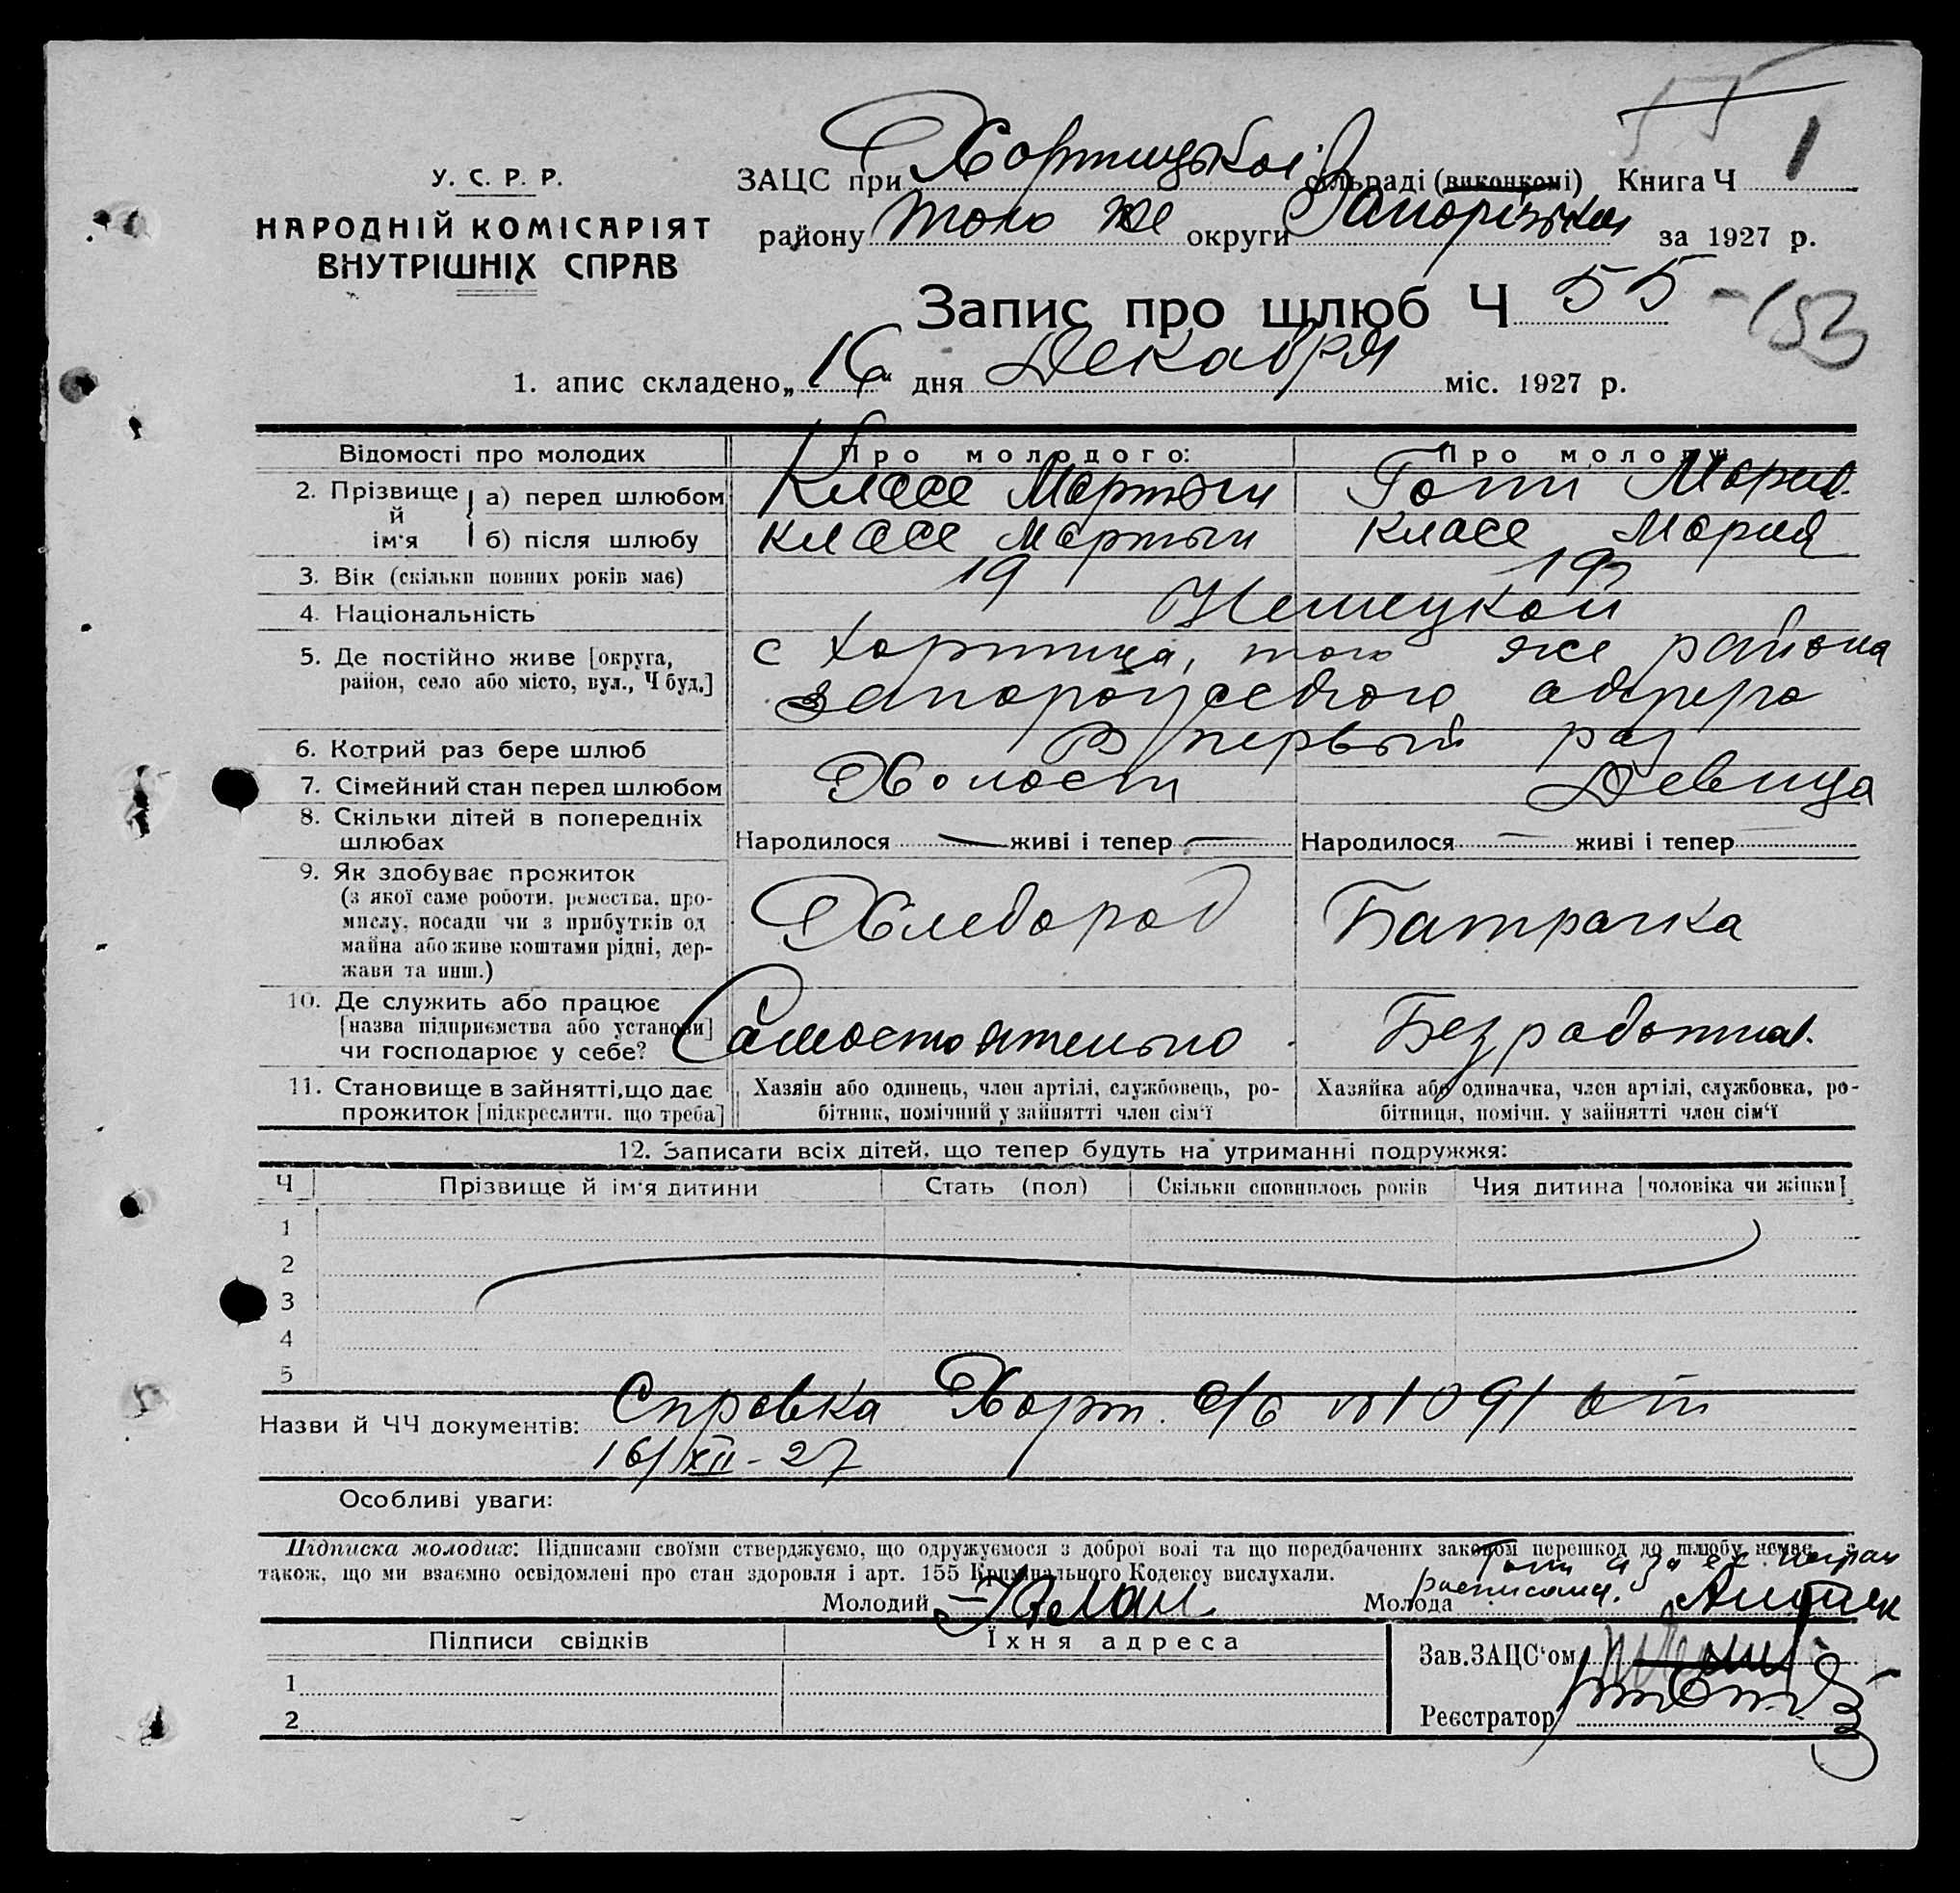 55
У. С. Р. Р.
НАРОДНІЙ КОМІСАРІЯТ
ВНУТРІШНІХ СПРАВ
ЗАЦС при Хортицької сільраді (виконкомі) Книга Ч 1
району того же округи Запорізька за 1927 р.
Запис про шлюб Ч 55 - 153
1. апис складено „16“ дня Декабря міс. 1927 р.
Відомості про молодих Про молодого: Про молоду:
2. Прізвище й ім'я а) перед шлюбом Классе Мартын Готт Мария
б) після шлюбу Классе Мартын Классе Мария
3. Вік (скільки повних років має) 19 19
4. Національність Немецкой
5. Де постійно живе [округа, с Хортица, того же района
район, село або місто, вул., Ч буд.] Запорожского округа
6. Котрий раз бере шлюб В первый раз
7. Сімейний стан перед шлюбом Холост Девица
8. Скільки дітей в попередніх
шлюбах Народилося — живі і тепер — Народилося — живі і тепер
9. Як здобуває прожиток
(з якої саме роботи, ремества, про-
мислу, посади чи з прибутків од Хлебороб Батрачка
майна або живе коштами рідні, дер-
жави та инш.)
10. Де служить або працює
[назва підприємства або установи] Самостоятельно Безработная
чи господарює у себе?
11. Становище в зайнятті, що дає Хазяїн або одинець, член артілі, службовець, ро- Хазяйка або одиначка, член артілі, службовка, ро-
прожиток [підкреслити, що треба] бітник, помічний у зайнятті член сім'ї бітниця, помічн. у зайнятті член сім'ї
12. Записати всіх дітей, що тепер будуть на утриманні подружжя:
Ч Прізвище й ім'я дитини Стать (пол) Скільки сповнилось років Чия дитина [чоловіка чи жінки]
1
2
3
4
5
Назви й ЧЧ документів: Справка Хорт. с/с № 1091 от
16/XII - 27
Особливі уваги:
Підписка молодих: Підписами своїми стверджуємо, що одружуємося з доброї волі та що передбачених законом перешкод до шлюбу немає, а
також, що ми взаємно освідомлені про стан здоровля і арт. 155 Кримінального Кодексу вислухали.
Готт а за ея неграм
Молодий Молода расписался.
Підписи свідків Їхня адреса Зав. ЗАЦС'ом
1
2 Реєстратор